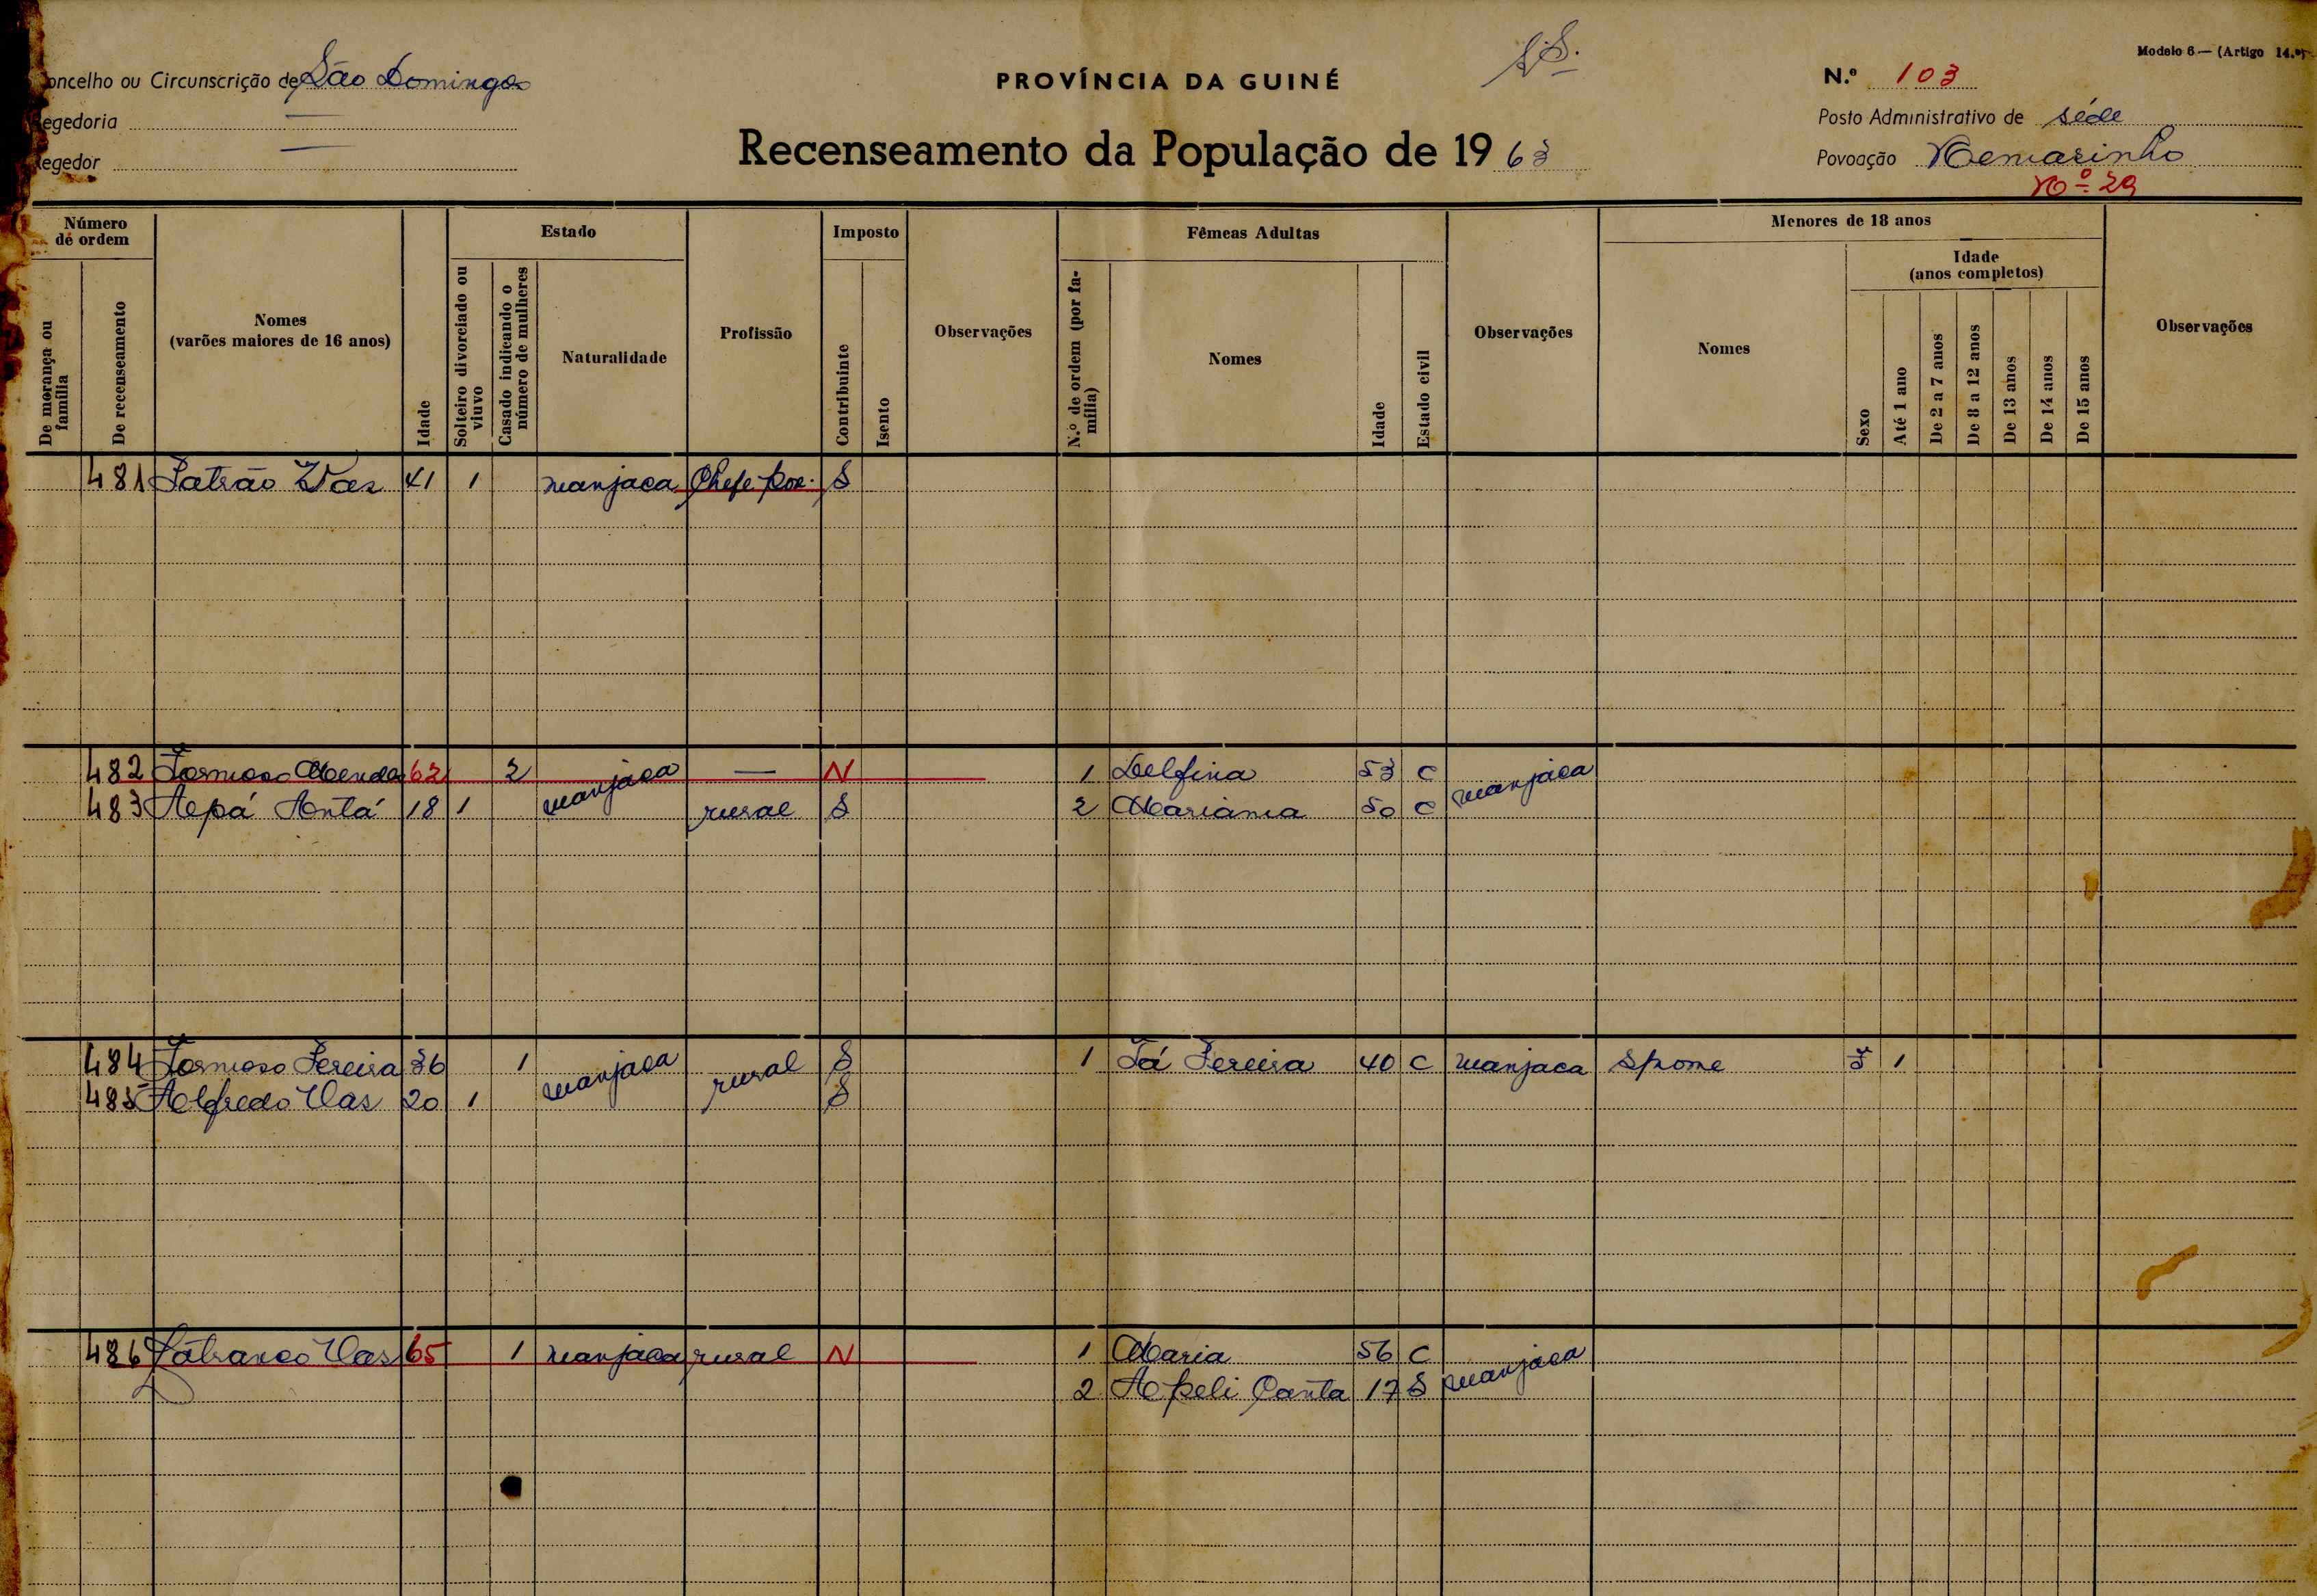 Modelo 6 — (Artigo 14.º)
Concelho ou Circunscrição de São Domingos
PROVÍNCIA DA GUINÉ
N.º 103
Regedoria —
Posto Administrativo de séde
Regedor —
Recenseamento da População de 1963
Povoação
Nº 29
Número de ordem
De morança ou família
De recenseamento
Nomes
(varões maiores de 16 anos)
Idade
Estado
Solteiro divorciado ou viuvo
Casado indicando o número de mulheres
Naturalidade
Profissão
Imposto
Contribuinte
Isento
Observações
Fêmeas Adultas
N.º de ordem (por família)
Nomes
Idade
Estado civil
Observações
Menores de 18 anos
Nomes
Sexo
Idade
(anos completos)
Até 1 ano
De 2 a 7 anos
De 8 a 12 anos
De 13 anos
De 14 anos
De 15 anos
Observações
481 Patrão Vaz 41 1 manjaca Chefe S
482 Formoso 62 2 manjaca — N 1 Delfina 53 C manjaca
483 Apá Antá 18 1 rural S 2 Mariama 50 C
484 Formoso Pereira 36 1 manjaca rural S 1 Tá Pereira 40 C manjaca Spone F 1
485 Alfredo Vas 20 1 S
486 Vas 65 1 manjaca rural N 1 Maria 56 C manjaca
2 Apeli Canta 17 S